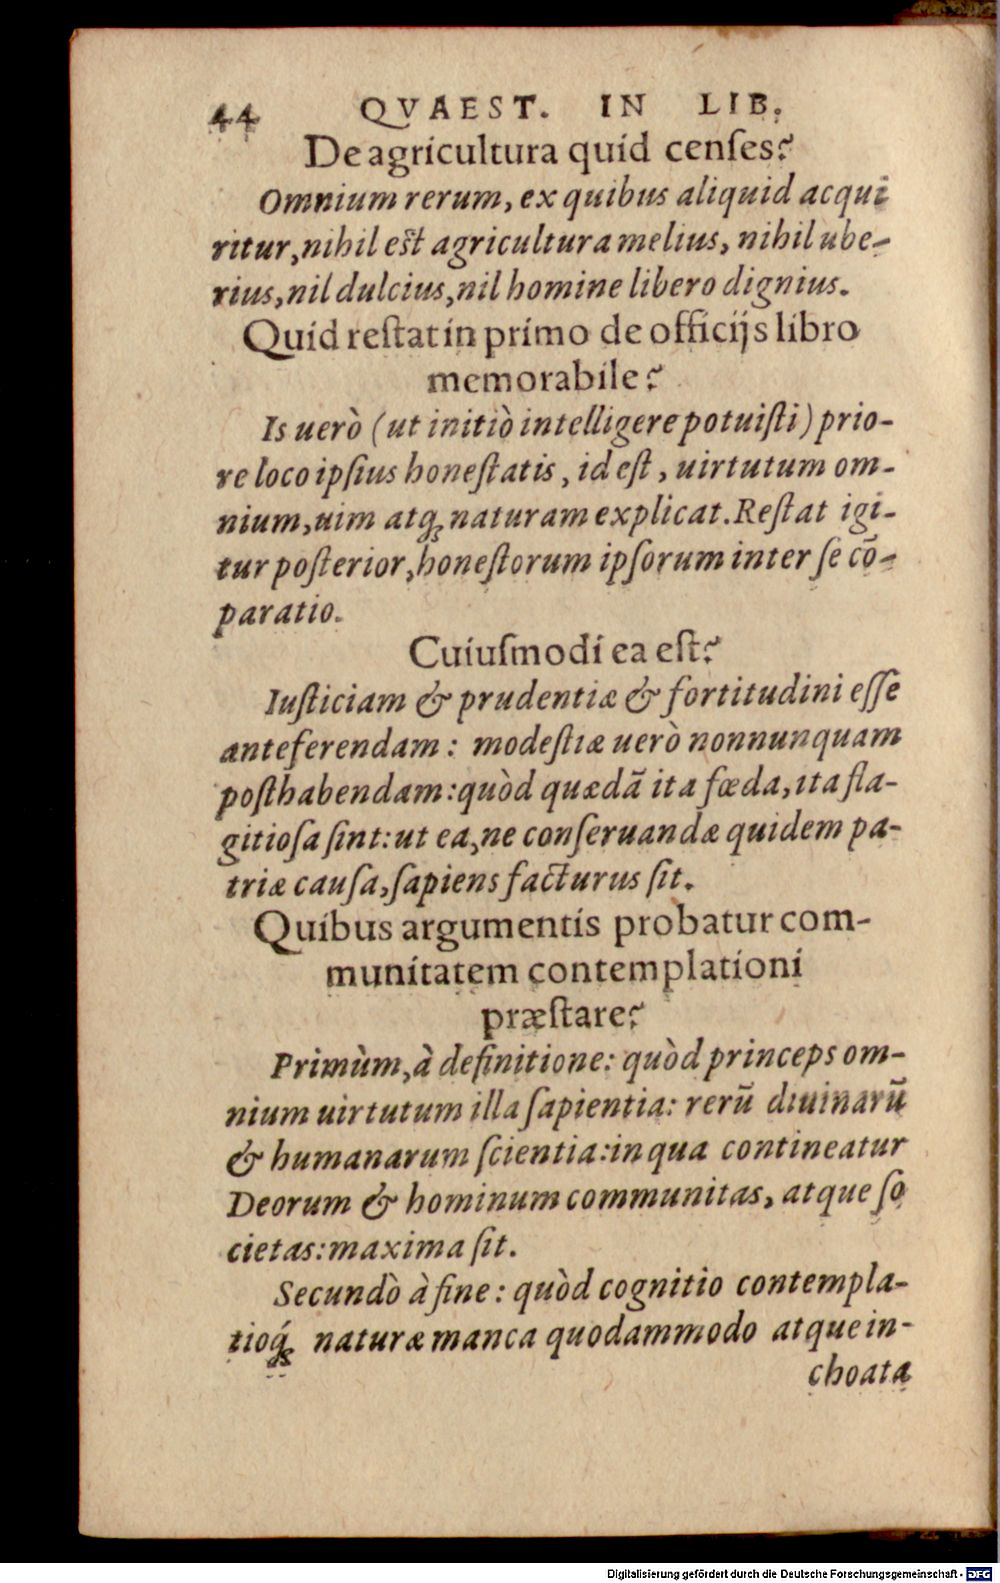 44 QVAEST. IN LIB.
De agricultura quid censes?
Omnium rerum, ex quibus aliquid acqui
ritur, nihil est agricultura melius, nihil ube-
rius, nil dulcius, nil homine libero dignius.
Quid restat in primo de officijs libro
memorabile?
Is uerò (ut initiò intelligere potuisti) prio-
re loco ipsius honestatis, id est, uirtutum om-
nium, uim atq; naturam explicat. Restat igi-
tur posterior, honestorum ipsorum inter se cō-
paratio.
Cuiusmodi ea est?
Iusticiam & prudentiæ & fortitudini esse
anteferendam: modestiæ uerò nonnunquam
posthabendam: quòd quædã ita fœda, ita fla-
gitiosa sint: ut ea, ne conseruandæ quidem pa-
triæ causa, sapiens facturus sit.
Quibus argumentis probatur com-
munitatem contemplationi
præstare?
Primùm, à definitione: quòd princeps om-
nium uirtutum illa sapientia: rerũ diuinarũ
& humanarum scientia: in qua contineatur
Deorum & hominum communitas, atque so
cietas: maxima sit.
Secundò à fine: quòd cognitio contempla-
tioq́; naturæ manca quodammodo atque in-
choata
Digitalisierung gefördert durch die Deutsche Forschungsgemeinschaft - DFG